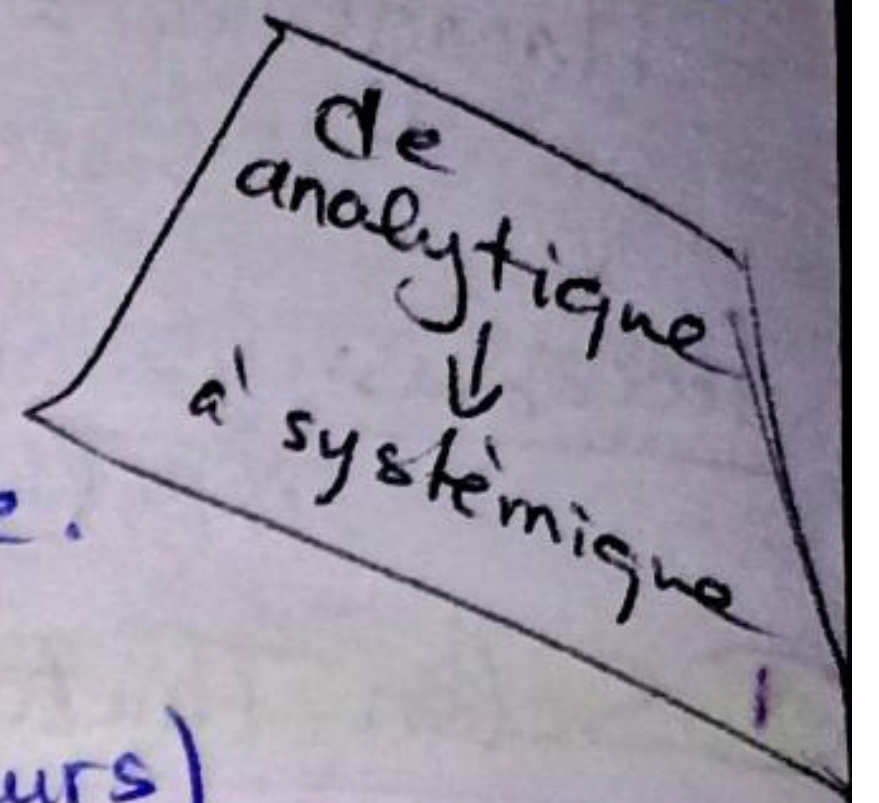 de
analytique
↓
à systèmique
e.
urs)